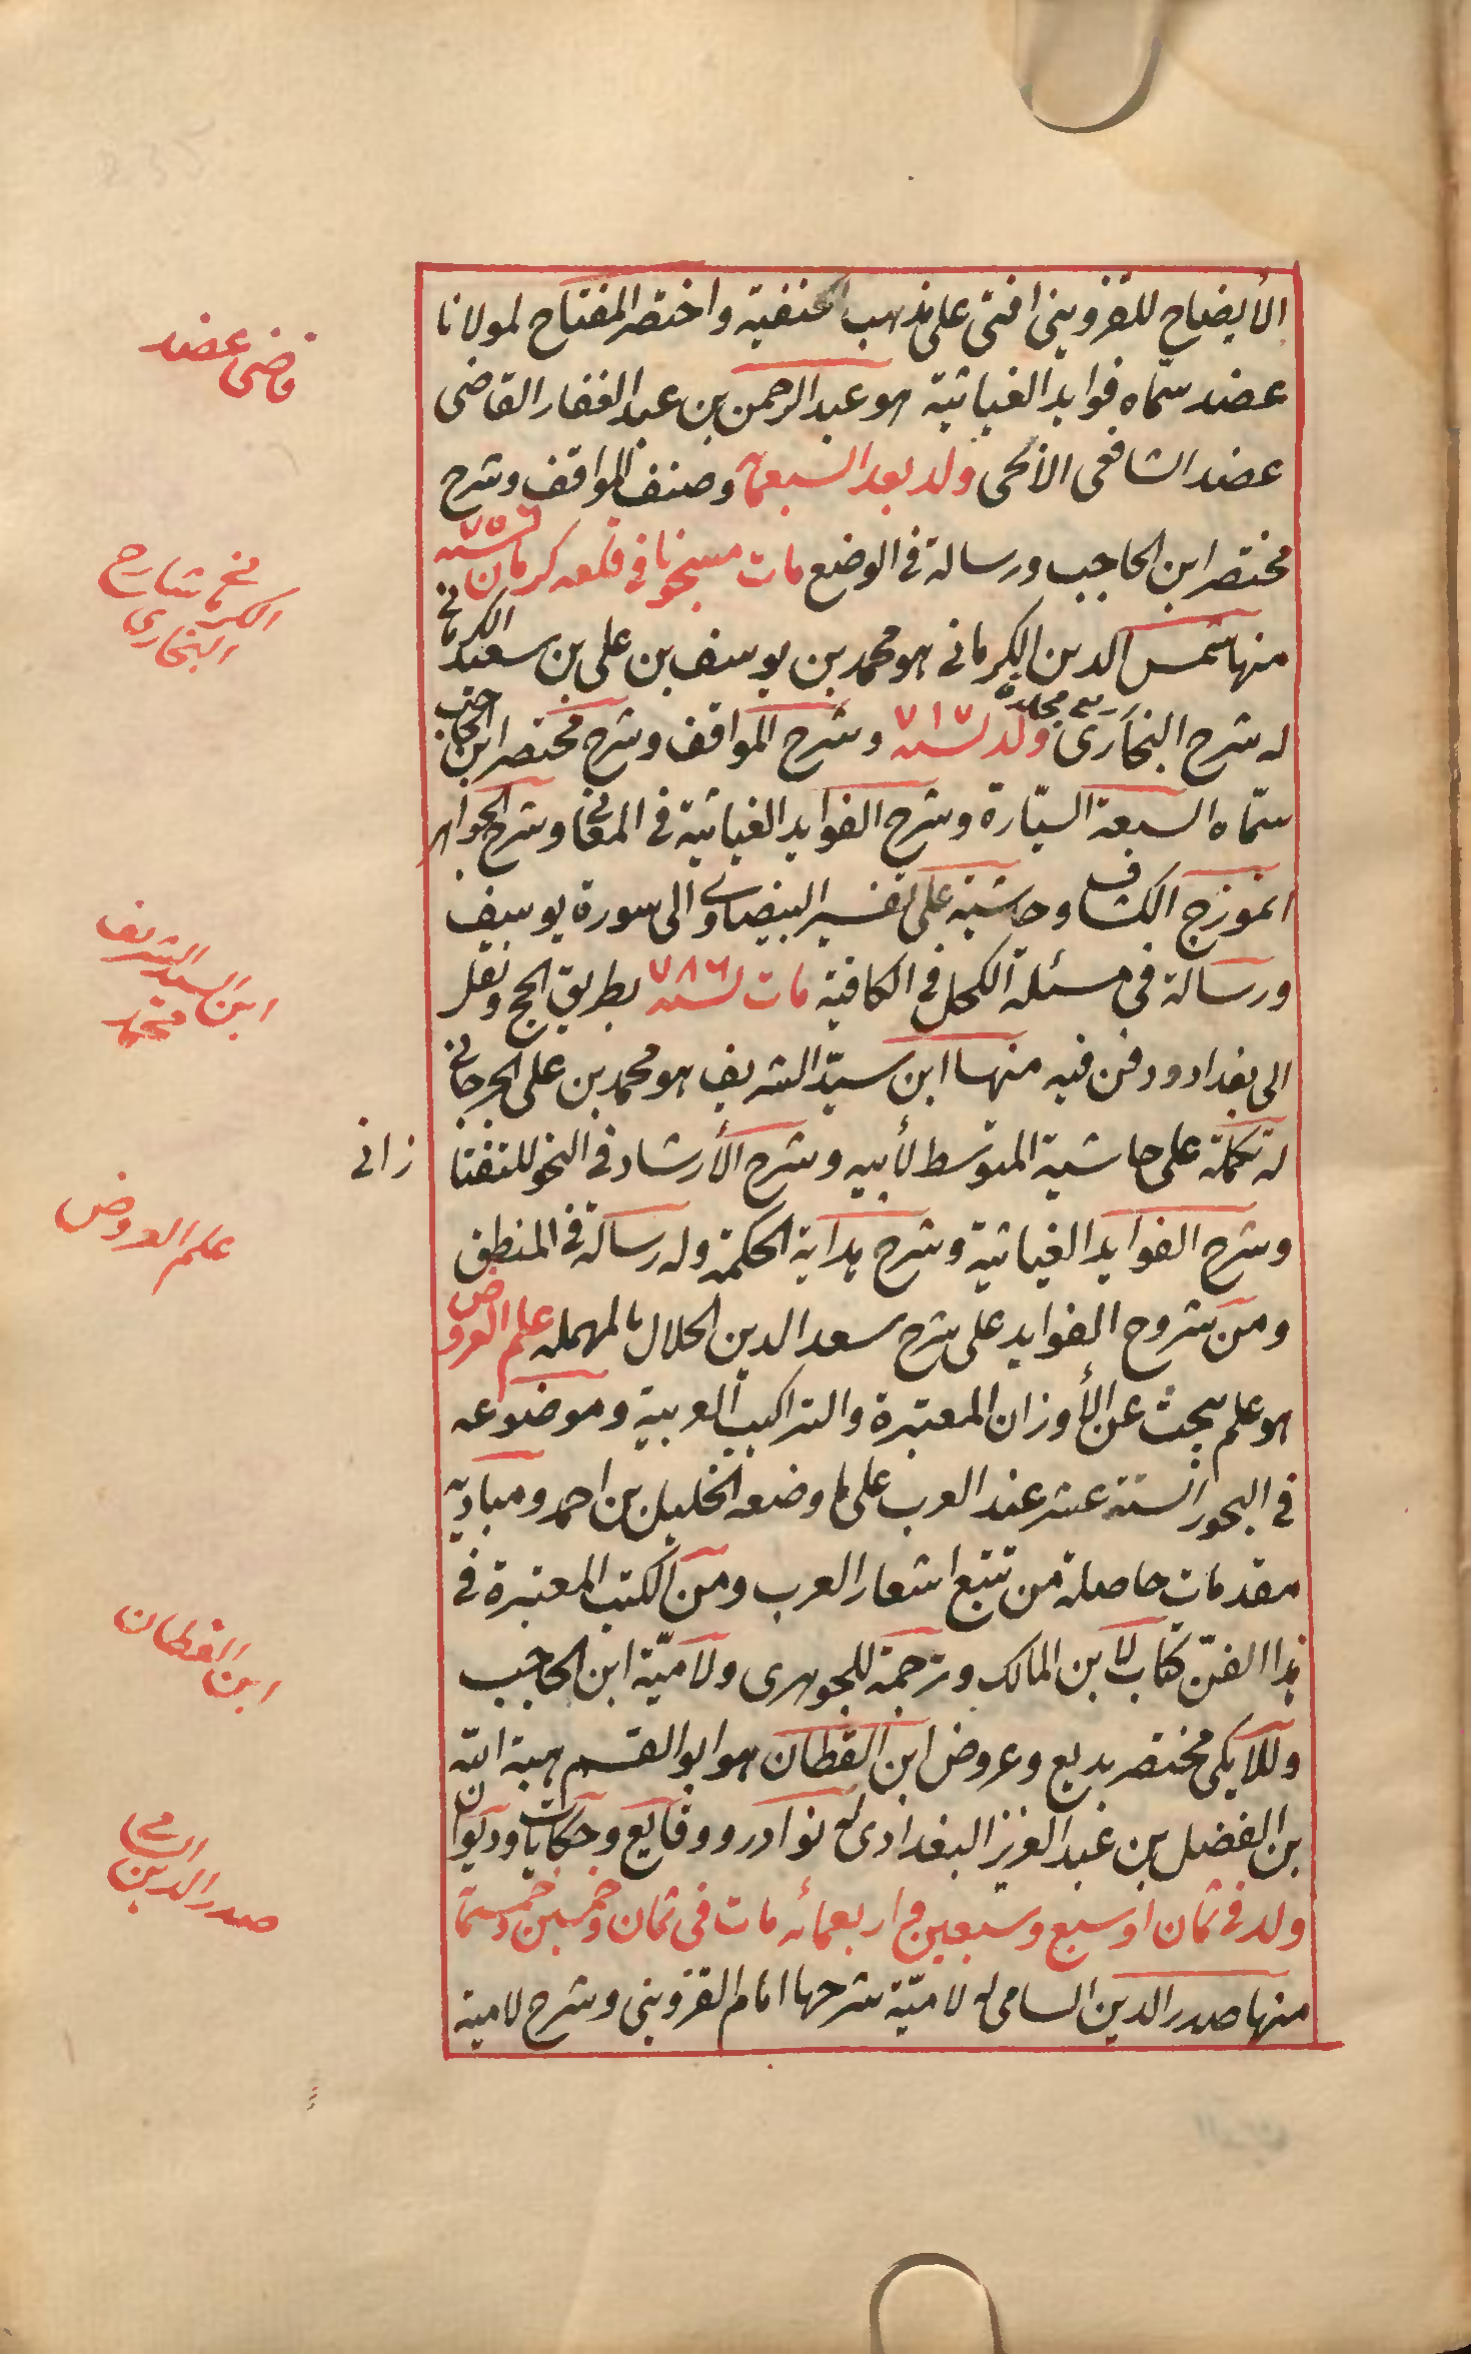 الأيضاح للقزويني افتى على مذهب الحنفية واختصر المفتاح لمولانا
عضد سمّاه فوايد الغياثية هو عبد الرحمن بن عبد الغفار القاضى
عضد الشافعى الأيجى ولد بعد السبعمائة وصنف المواقف وشرح
مختصر ابن الحاجب ورسالة فى الوضع مات مسجونا فى قلعه كرمان سنه ٧٥٦
منها شمس الدين الكرمانى هو محمد بن يوسف بن على بن سعيد الكرمانى
له شرح البخارى ولد سنه ٧١٧ وشرح المواقف وشرح مختصر ابن الحاجب
سمّاه السبعة السيّارة وشرح الفوايد الغياثية فى المعانى وشرح الجواهر
انموزج الكشاف وحاشية على تفسير البيضاوى الى سورة يوسف
ورسالة فى مسئلة الكحل فى الكافية مات سنه ٧٨٦ بطريق الحج ونقل
الى بغداد ودفن فيه منها ابن سيّد الشريف هو محمد بن على الجرجانى
له تكملة على حاشية المتوسط لأبيه وشرح الأرشاد فى النحو للتفتا زانى
وشرح الفوايد الغياثية وشرح هداية الحكمة وله رسالة فى المنطق
ومن شروح الفوايد على شرح سعد الدين الحلال بالمهمله علم العروض
هو علم يبحث عن الأوزان المعتبرة والتراكيب العربية وموضوعه
فى البحور الستة عشر عند العرب على ما وضعه الخليل بن احمد ومباديه
مقدمات حاصلة من تتبع اشعار العرب ومن الكتب المعتبرة فى
هذا الفنّ كتاب لابن المالك وترجمة للجوهرى ولاميّة ابن الحاجب
وللايكى مختصر بديع وعروض ابن القطان هو ابو القسم هبة الله
بن الفضل بن عبد العزيز البغدادى له نوادر ووقايع وحكايات وديوان
ولد فى ثمان او سبع وسبعين واربعمائه مات فى ثمان وخمسين وخمسمائة
منها صدر الدين السامى له لاميّة شرحها امام القزوينى وشرح لامية
قاضى عضد
الكرمانى شارح
البخارى
ابن السيد الشريف
محمد
علم العروض
ابن القطان
صدر الدين
السامى